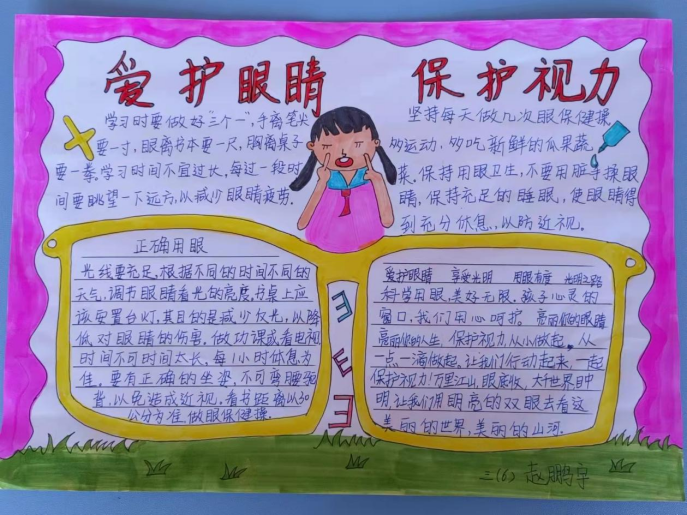 爱护眼睛 保护视力
学习时要做好"三个一",手离笔尖
要一寸,眼离书本要一尺,胸离桌子
要一拳,学习时间不宜过长,每过一段时
间要眺望一下远方,以减少眼睛疲劳.
坚持每天做几次眼保健操
多运动,多吃新鲜的瓜果蔬
菜.保持用眼卫生,不要用脏手揉眼
睛.保持充足的睡眠,使眼睛得
到充分休息,以防近视.
正确用眼
光线要充足,根据不同的时间不同的
天气,调节眼睛看光的亮度,书桌上应
该安置台灯,其目的是减少反光,以降
低对眼睛的伤害.做功课或看电视
时间不可时间太长,每1小时休息为
佳.要有正确的坐姿,不可弯腰驼
背,以免造成近视.看书距离以30
公分为准,做眼保健操.
爱护眼睛 享受光明 用眼有度 光明之路
科学用眼,美好无限.孩子心灵的
窗口,我们用心呵护.亮丽你的眼睛
亮丽你的人生.保护视力从小做起,从
一点一滴做起.让我们行动起来,一起
保护视力!万里江山,眼底收,大世界目中
明,让我们用明亮的双眼去看这
美丽的世界,美丽的山河.
三(6) 赵鹏宇